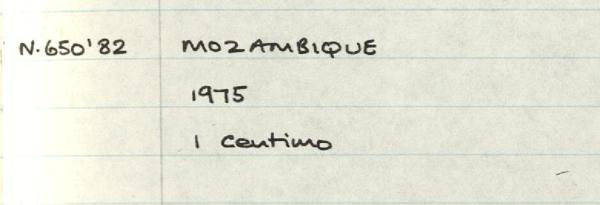 N.650'82 MOZAMBIQUE
1975
1 Centimo